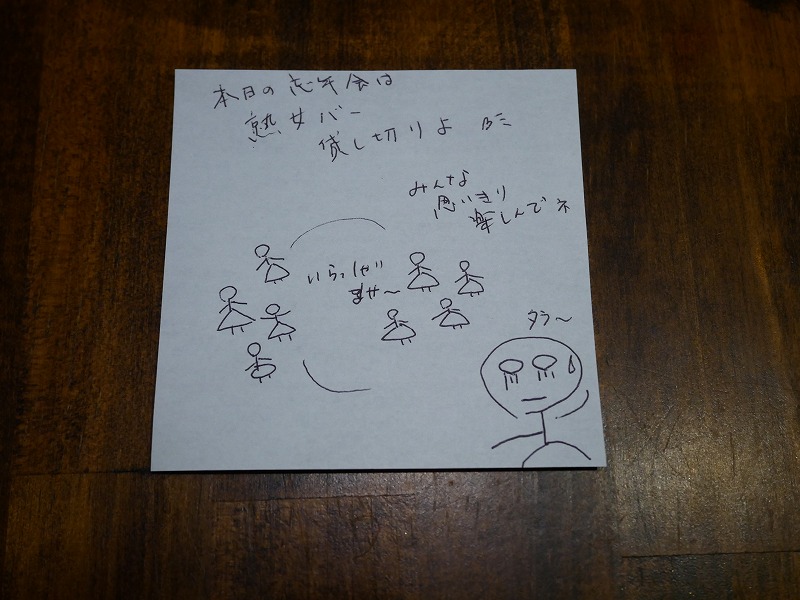 本日の忘年会は
熟女バー
貸し切りよ
みんな
思いきり
楽しんでネ
いらっしゃい
ませ〜
タラ〜